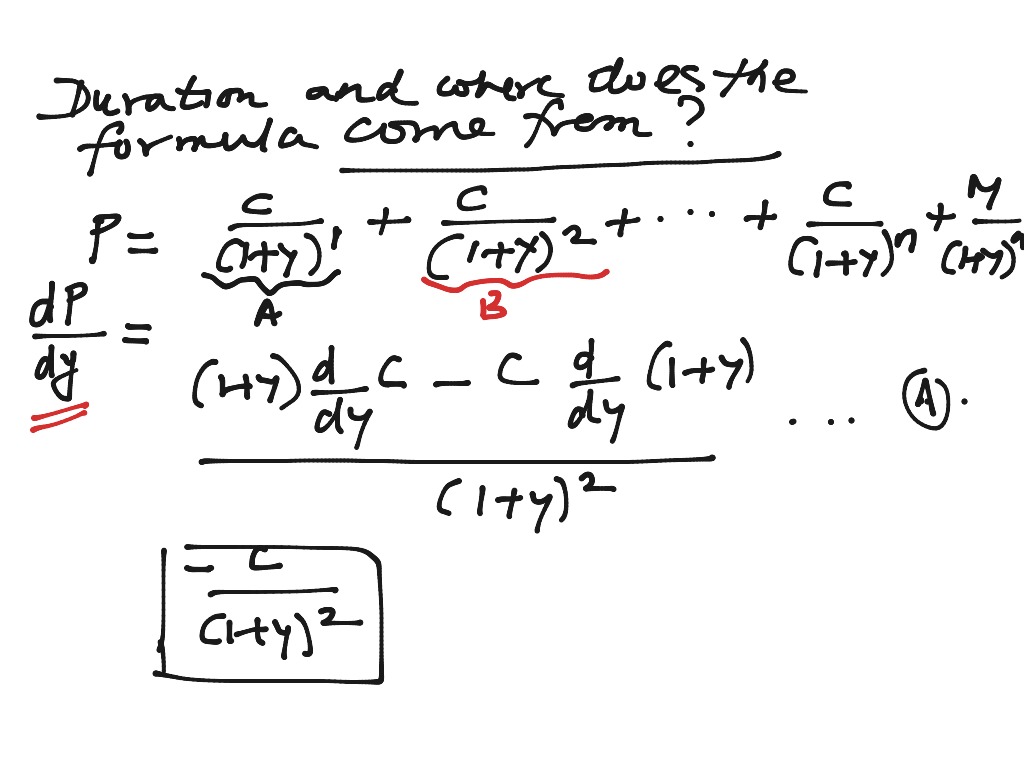 Duration and where does the
formula come from?
P = C/(1+y)^1 + C/(1+y)^2 + ... + C/(1+y)^n + M/(1+y)^n
A B
dP/dy = ((1+y) d/dy C - C d/dy (1+y))/(1+y)^2 ... (A).
= C/(1+y)^2